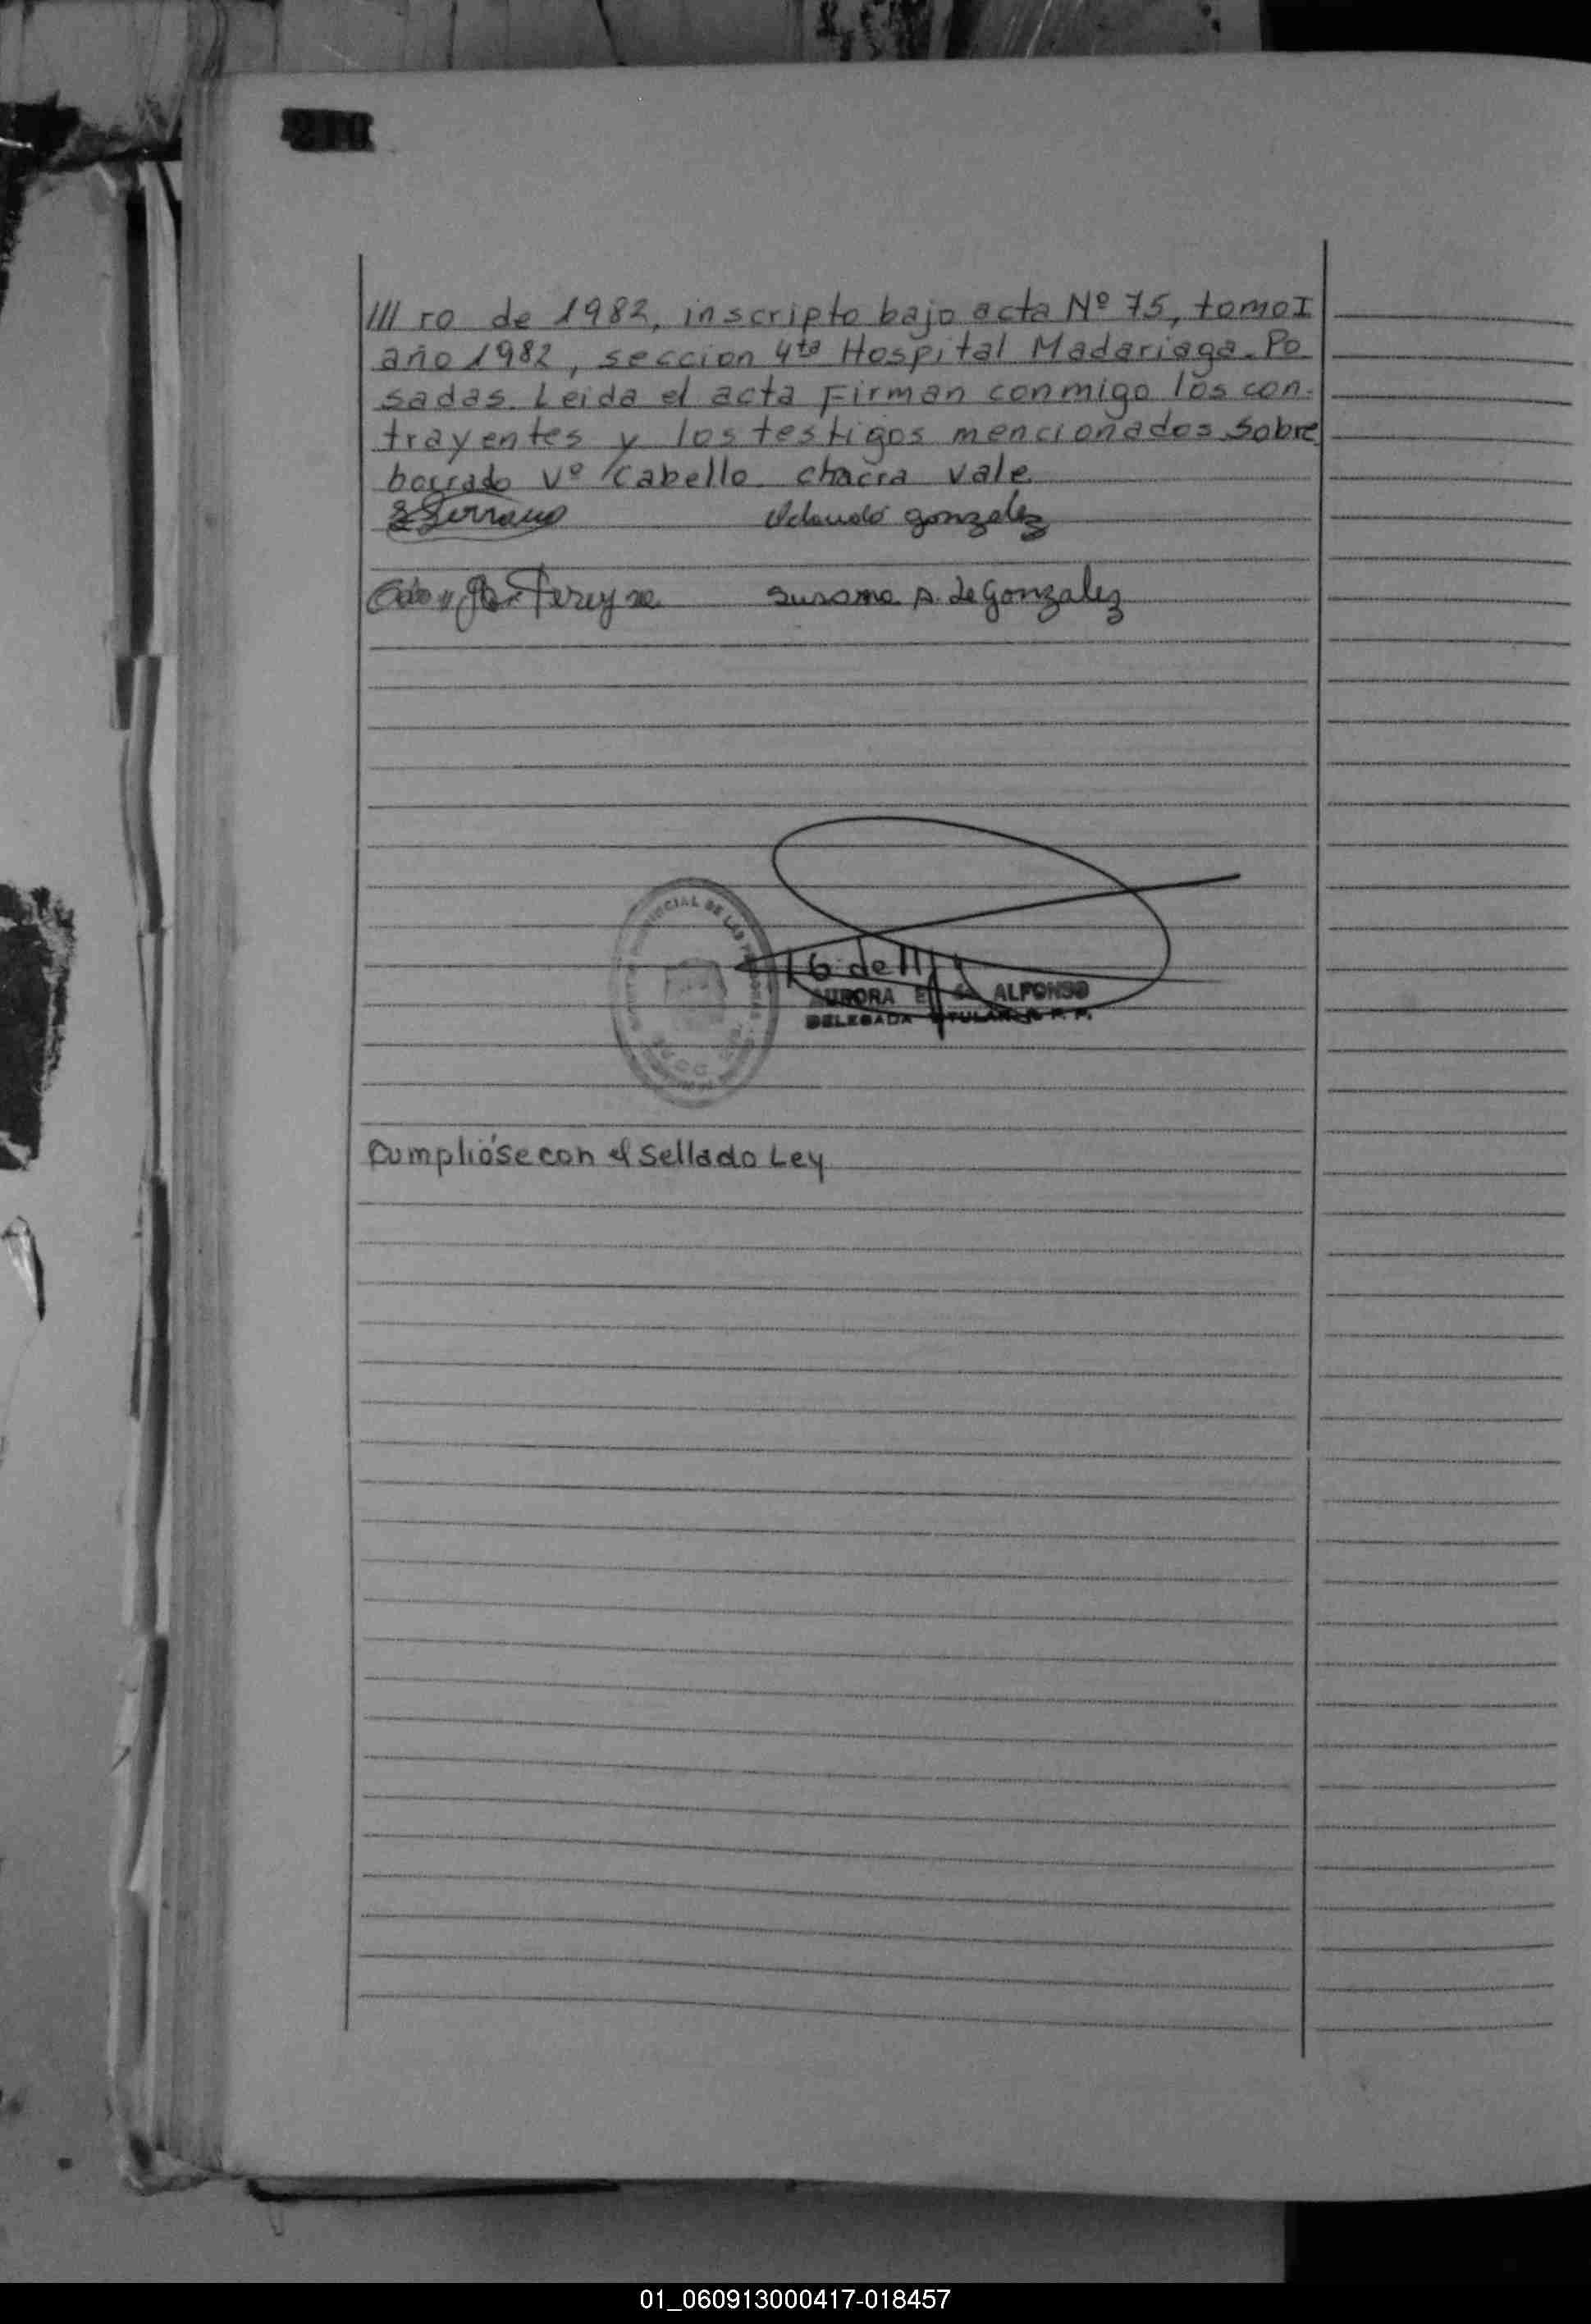 /// ro de 1982, inscripto bajo acta Nº 75, tomo I
año 1982, seccion 4ta Hospital Madariaga. Po
sadas. Leida el acta Firman conmigo los con-
trayentes y los testigos mencionados sobre
borrado Vº Cabello chacra vale
gonzalez
Pereyra susana A. de Gonzalez
AURORA ALFONSO
DELEGADA TITULAR R. P. P.
Cumplióse con el Sellado Ley
01_060913000417-018457